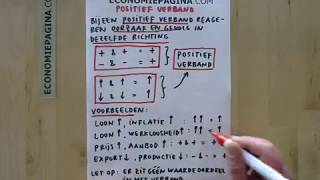 ECONOMIEPAGINA.COM
POSITIEF VERBAND
BIJ EEN POSITIEF VERBAND REAGE-
REN OORZAAK EN GEVOLG IN
DEZELFDE RICHTING
+ & + = +
- & - = +
POSITIEF
VERBAND
↑ & ↑ = ↑
↓ & ↓ = ↑
VOORBEELDEN:
LOON↑, INFLATIE↑ : ↑↑ = ↑
LOON↑, WERKLOOSHEID↑ : ↑↑
PRIJS↑, AANBOD↑ : + & + =
EXPORT↓, PRODUCTIE↓ : - & - = +
LET OP: ER ZIT GÉÉN WAARDEOORDEEL
IN HET VERBAND